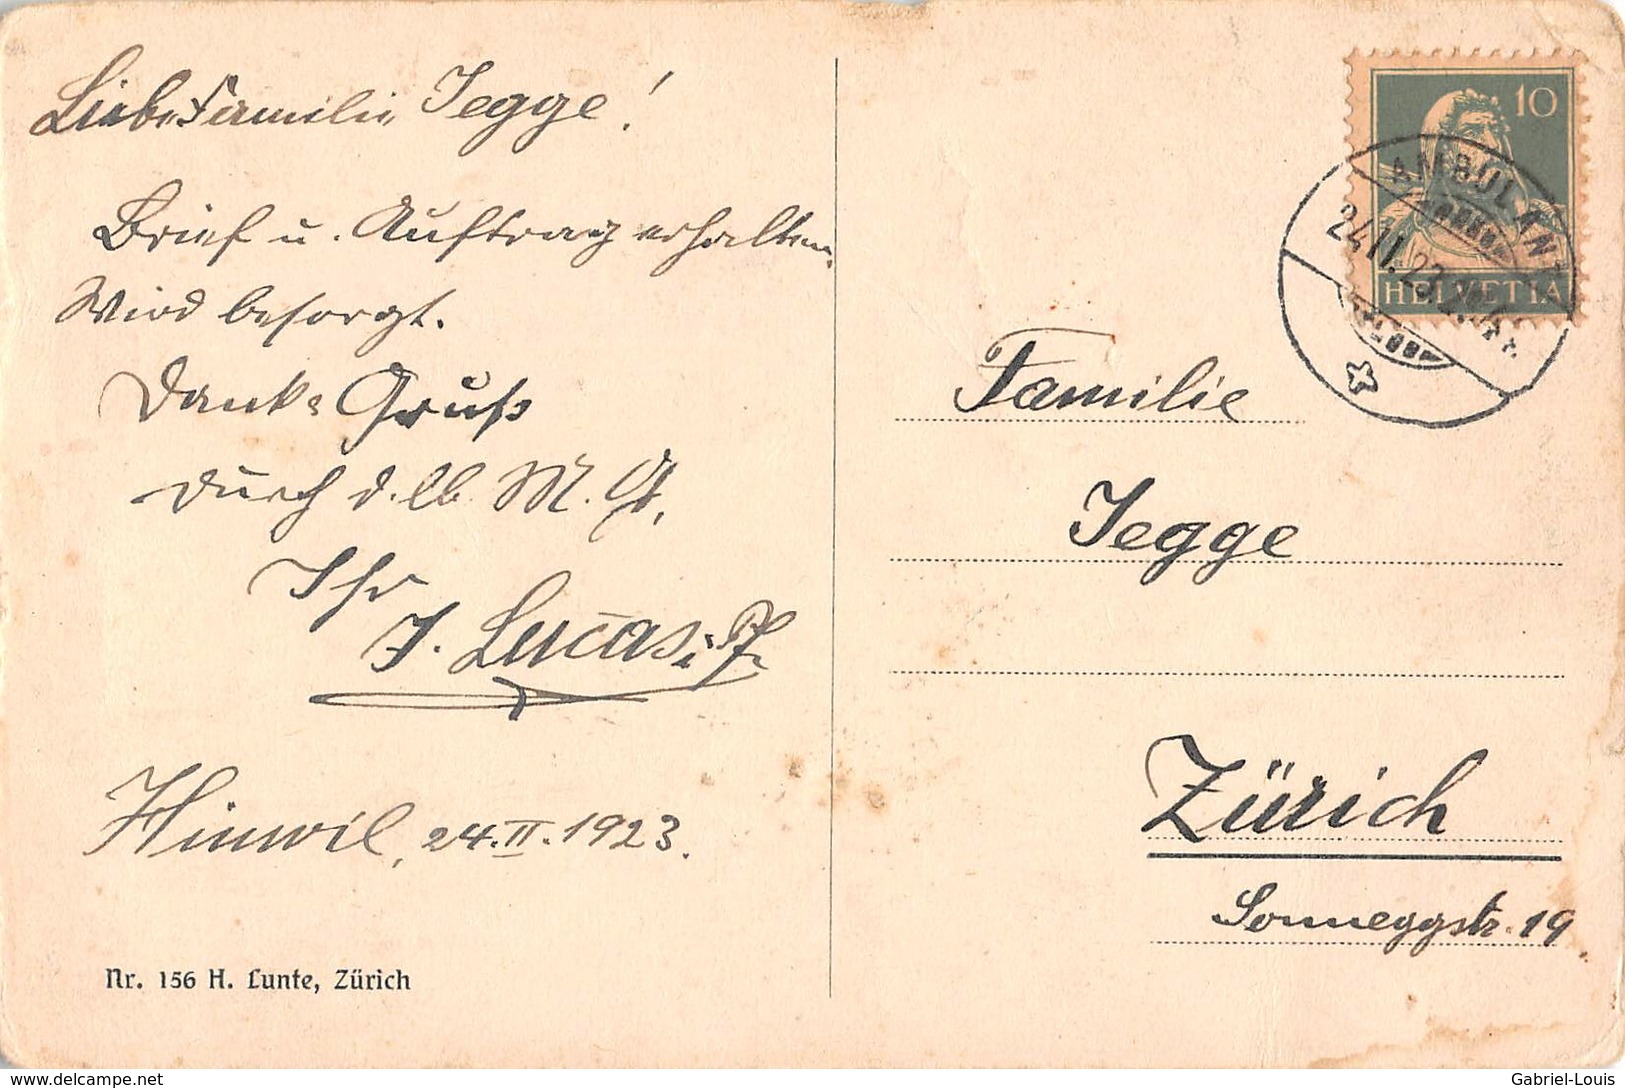 Liebe Familie Jegge!
Brief u. Auftrag erhalten.
Wird besorgt.
Dank & Gruß
durch d. lb. M. G.
Ihr
J. Lucas
Hinwil, 24.II.1923.
Nr. 156 H. Lunte, Zürich
10
HELVETIA
AMBULANT
24.II.23
Familie
Jegge
Zürich
Sonneggstr. 19
delcampe.net
Gabriel-Louis